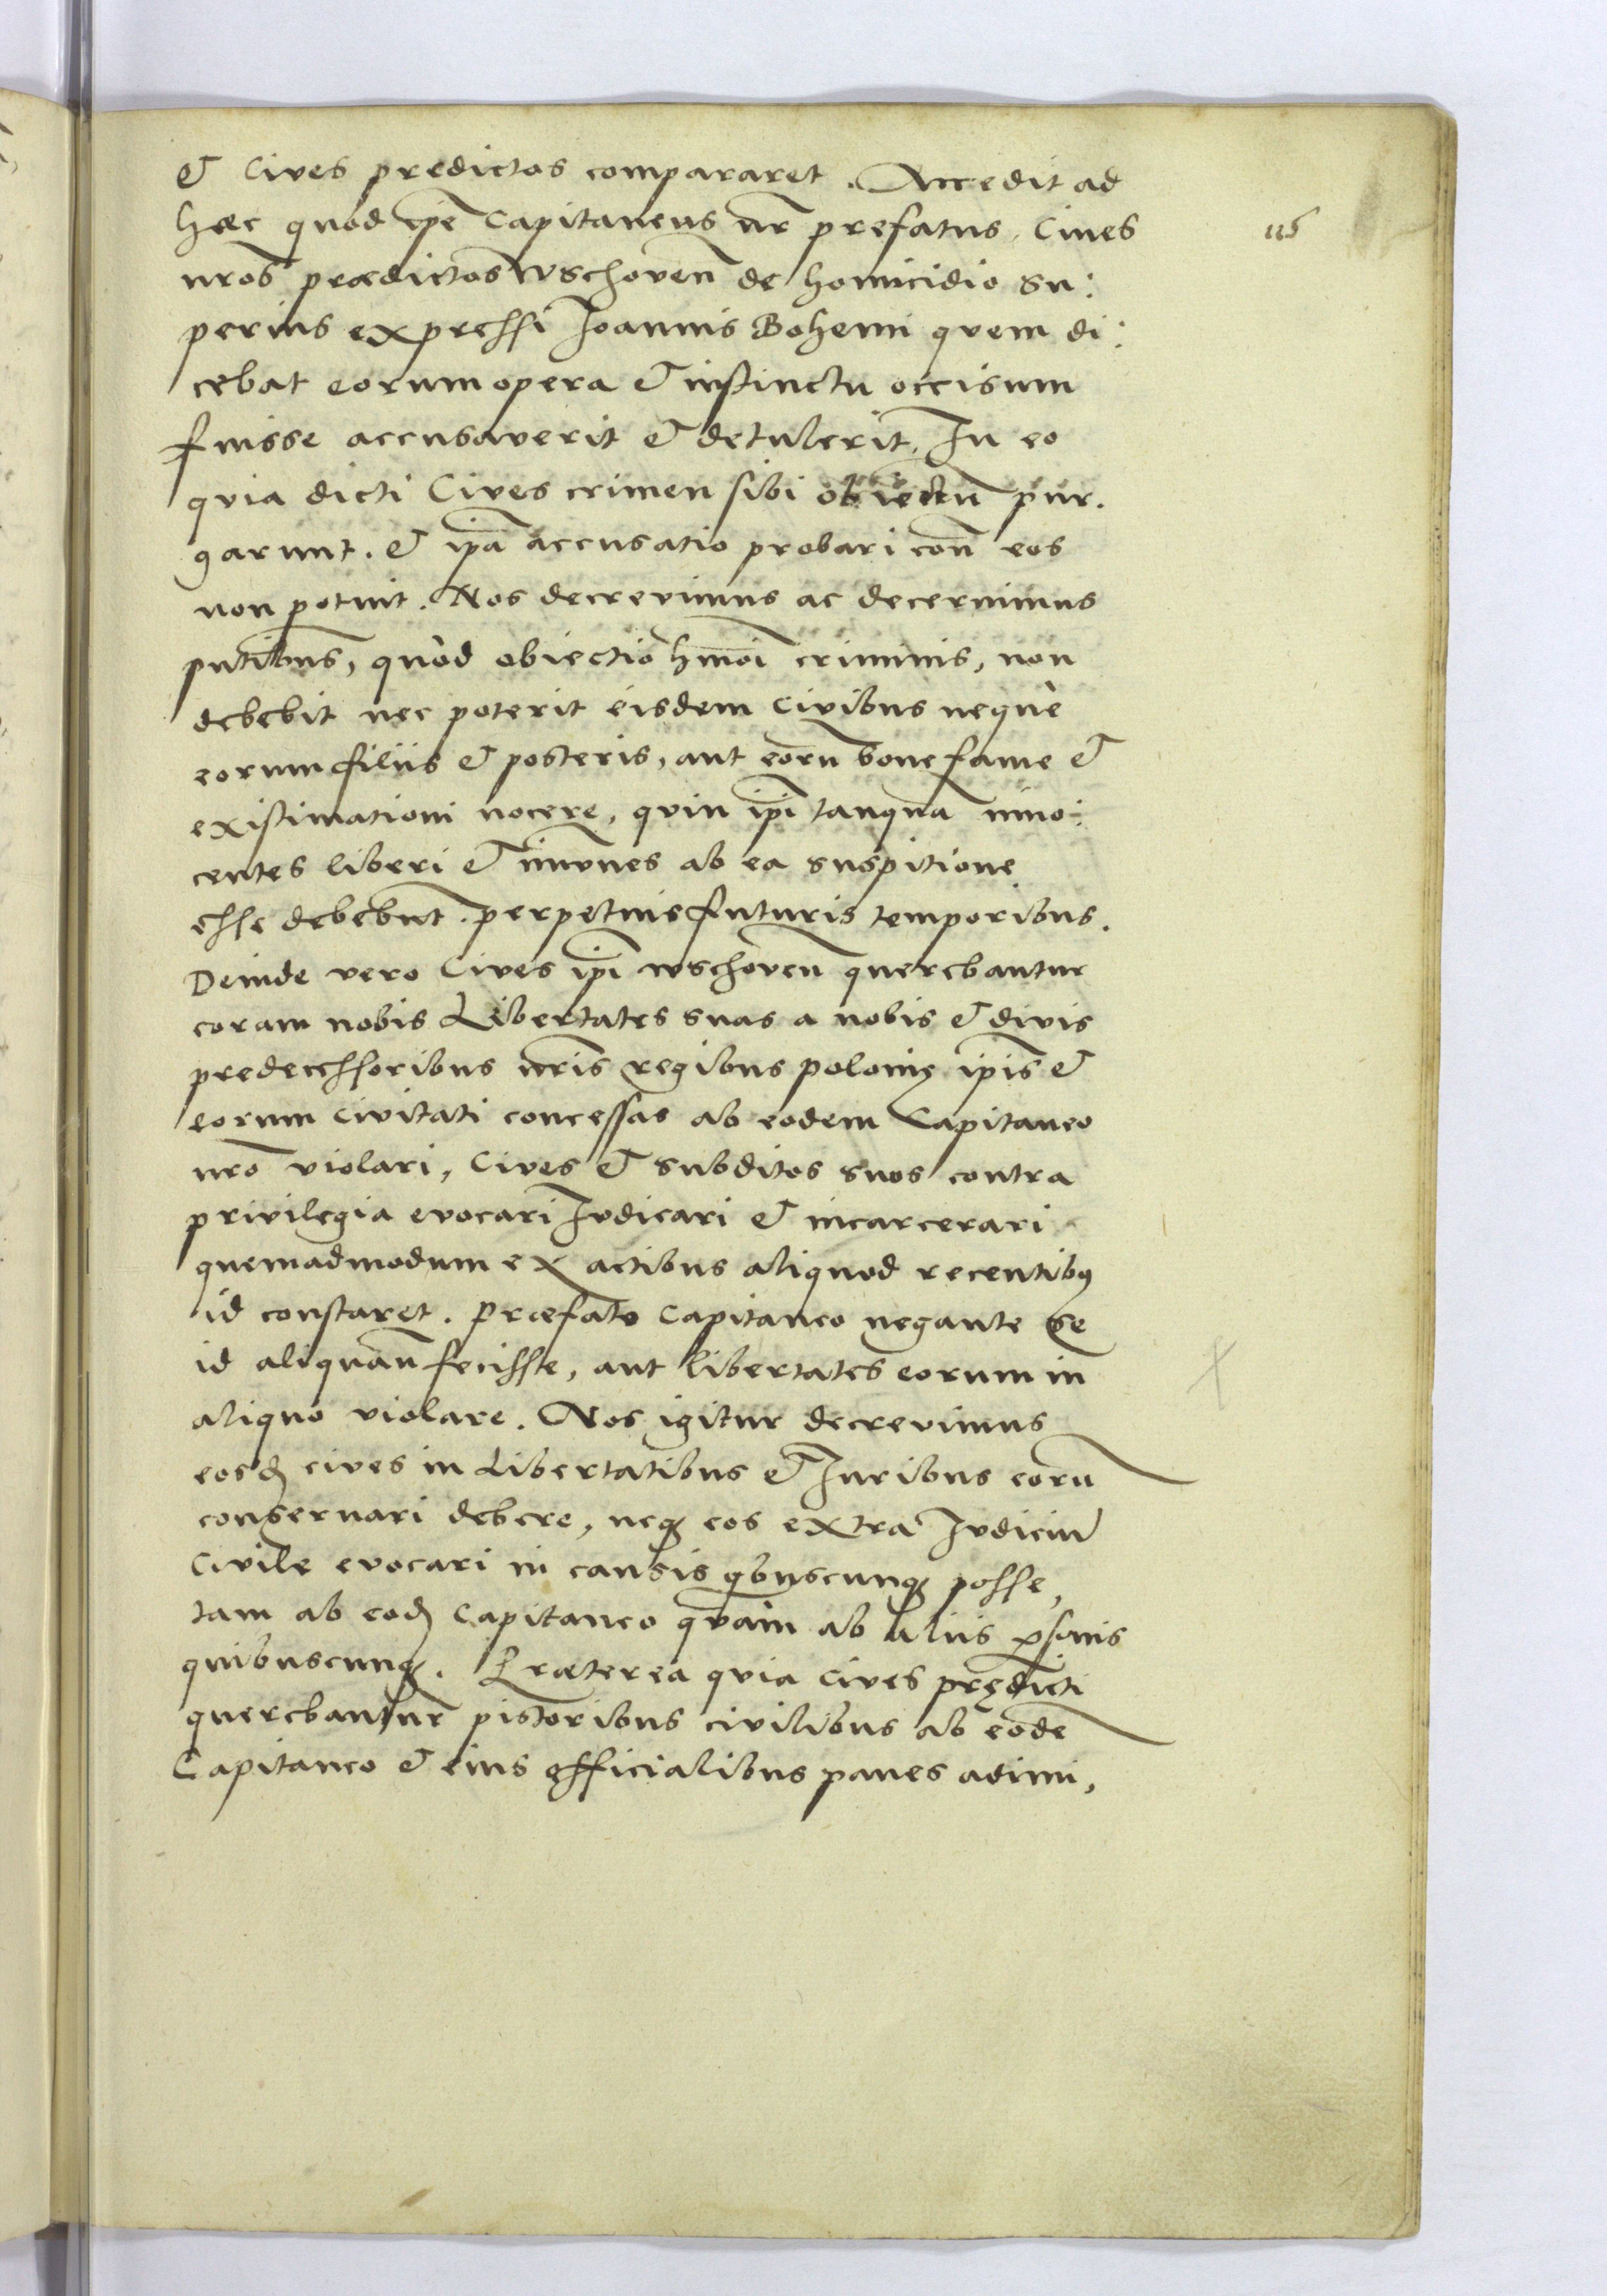 & Cives predictos compararet. Accedit ad
hæc quòd ip̄e Capitaneus nr̄ prefatus, Cives
115
nr̄os prædictos Wschoveñ de homicidio su:
perius expressi Joannis Bohemi quem di:
cebat eorum opera & instinctu occisum
fuisse accusaverit & detulerit, In eo
quia dicti Cives crimen sibi obiectū pur.
garunt. & ip̄a accusatio probari coñ eos
non potuit. Nos decrevimus ac decernimus
pn̄tibus, quòd obiectio hm̄oi criminis, non
debebit nec poterit eisdem Civibus neque
eorum filiis & posteris, aut eorū bone fame &
existimationi nocere, quin ip̄i tanquā inno:
centes liberi & im̄unes ab ea suspitione
esse debebūt. perpetuis futuris temporibus.
Deinde vero Cives ip̄i wschoveñ querebantur
coram nobis Libertates suas a nobis & divis
predecessoribus nr̄is regibus polonię ip̄is &
eorum Civitati concessas ab eodem Capitaneo
nr̄o violari, Cives & subditos suos contra
privilegia evocari Iudicari & incarcerari
quemadmodum ex actibus aliquod recentibꝫ
id constaret. Præfato Capitaneo negante se
id aliquañ fecisse, aut libertates eorum in
aliquo violare. Nos igitur decrevimus
eosdꝫ cives in Libertatibus & Iuribus eorū
conservari debere, neqꝫ eos extra Iudiciū
Civile evocari in causis qbuscunqꝫ posse,
tam ab eodꝫ Capitaneo quàm ab aliis ꝑsonis
quibuscunqꝫ. Præterea quia Cives prędicti
querebantur pistoribus civilibus ab eodē
Capitaneo & eius officialibus panes adimi,